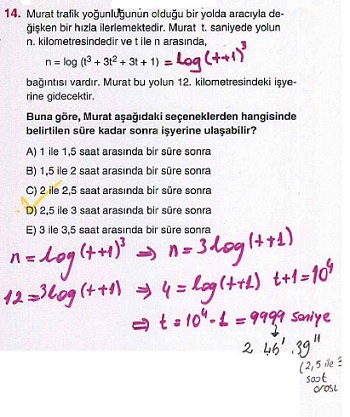 14. Murat trafik yoğunluğunun olduğu bir yolda aracıyla de-
ğişken bir hızla ilerlemektedir. Murat t. saniyede yolun
n. kilometresindedir ve t ile n arasında,
n = log (t³ + 3t² + 3t + 1) = log(t+1)³
bağıntısı vardır. Murat bu yolun 12. kilometresindeki işye-
rine gidecektir.
Buna göre, Murat aşağıdaki seçeneklerden hangisinde
belirtilen süre kadar sonra işyerine ulaşabilir?
A) 1 ile 1,5 saat arasında bir süre sonra
B) 1,5 ile 2 saat arasında bir süre sonra
C) 2 ile 2,5 saat arasında bir süre sonra
D) 2,5 ile 3 saat arasında bir süre sonra
E) 3 ile 3,5 saat arasında bir süre sonra
n = log(t+1)³ ⇒ n = 3log(t+1)
12 = 3log(t+1) ⇒ 4 = log(t+1) t+1 = 10⁴
⇒ t = 10⁴ - 1 = 9999 saniye
2 46' 39"
(2,5 ile 3
saat
arası